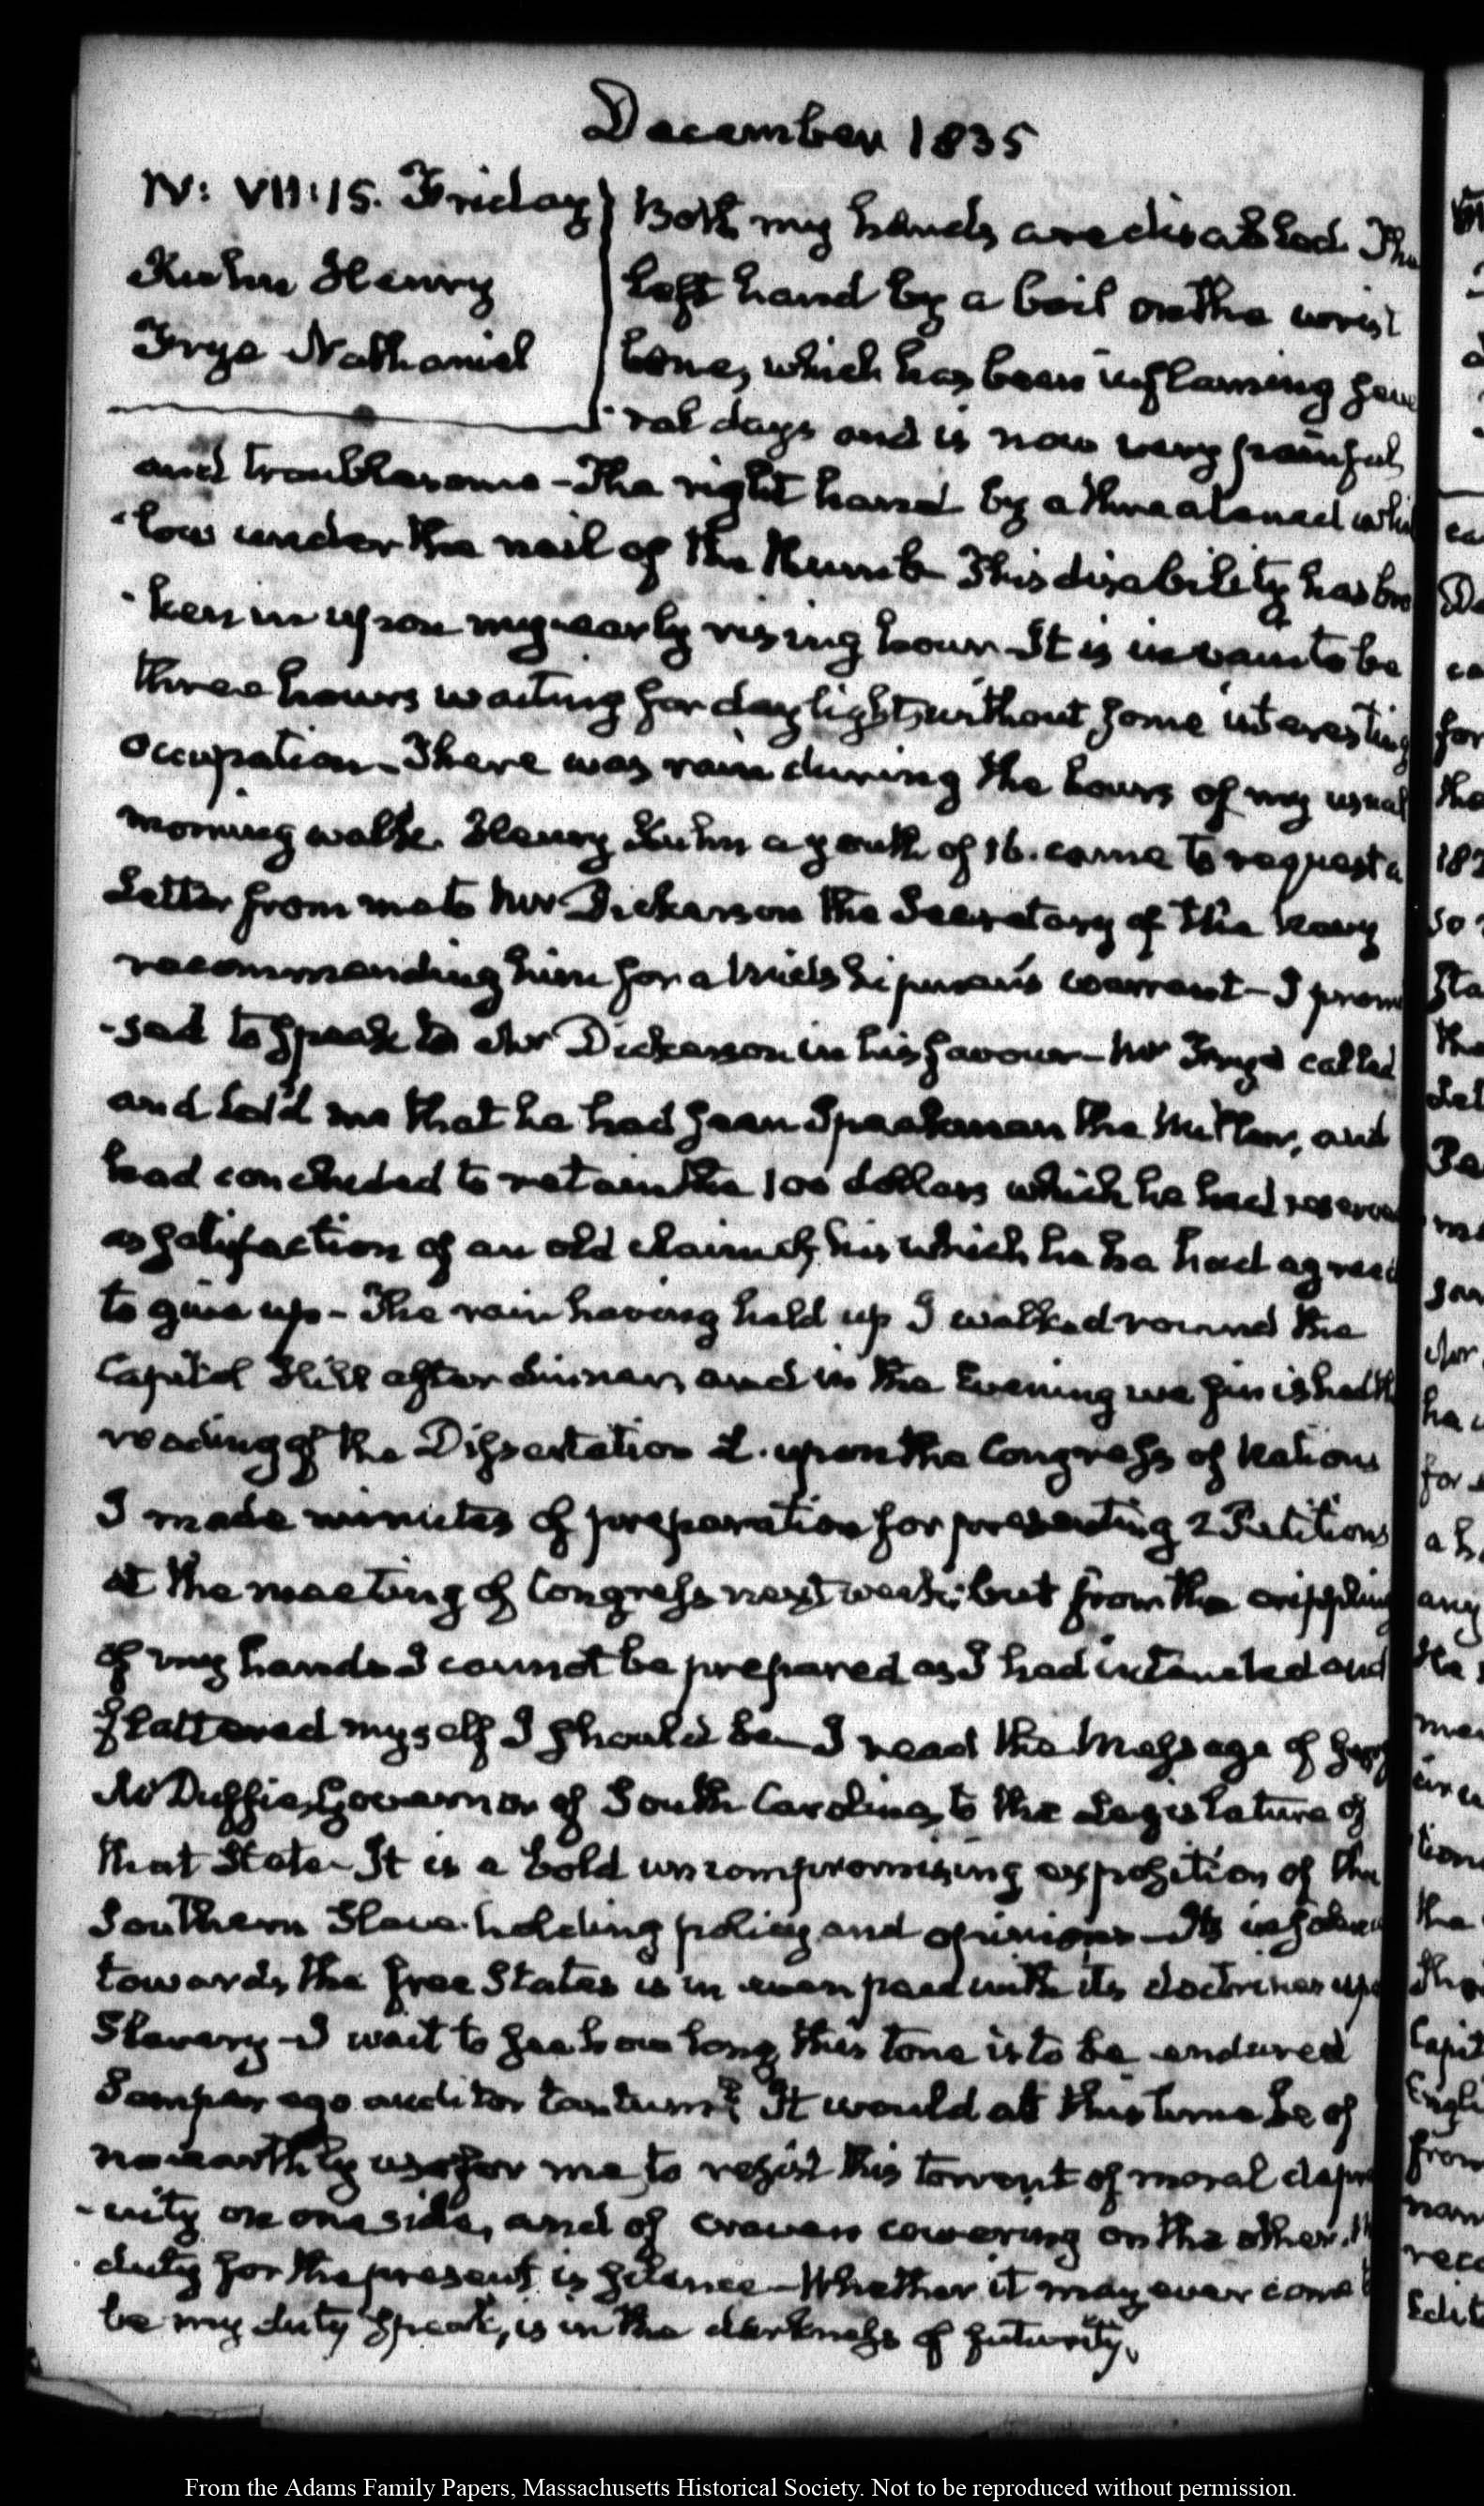 December 1835
IV: VII:15. Friday
Kuhn Henry
Frye Nathaniel
Both my hands are disabled. The
left hand by a boil on the wrist
bone, which has been inflaming seve
-ral days and is now very painful
and troublesome - The right hand by a threatened whit
-low under the nail of the thumb This disability has bro
-ken in upon my early rising hour - It is in vain to be
three hours waiting for day light, without some interesting
occupation - There was rain during the hours of my usual
morning walk. Henry Kuhn a youth of 16. came to request a
Letter from me to Mr Dickerson the Secretary of the Navy
recommending him for a Midshipman's warrant - I promi
-sed to speak to Mr Dickerson in his favour - Mr Frye called
and told me that he had seen Speakman the Miller, and
had concluded to retain the 100 dollars which he had reserved
as satisfaction of an old claim of his which he he had agreed
to give up - The rain having held up I walked round the
Capitol Hill after dinner, and in the Evening we finished the
reading of the Dissertation 2. upon the Congress of Nations
I made minutes of preparation for presenting 2 Petitions
at the meeting of Congress next week; but from the crippling
of my hands I cannot be prepared as I had intended and
flattered myself I should be - I read the Message of
McDuffie, Governor of South Carolina, to the Legislature of
that State - It is a bold uncompromising exposition of the
Southern Slave-holding policy and opinions - Its insolence
towards the free States is in even pace with its doctrines upon
Slavery - I wait to see how long this tone is to be endured
Semper ego auditor tantum? It would at this time be of
no earthly use for me to resist this torrent of moral depra
-vity on one side, and of craven cowering on the other.
duty for the present is silence - Whether it may ever come
be my duty speak, is in the darkness of futurity.
From the Adams Family Papers, Massachusetts Historical Society. Not to be reproduced without permission.